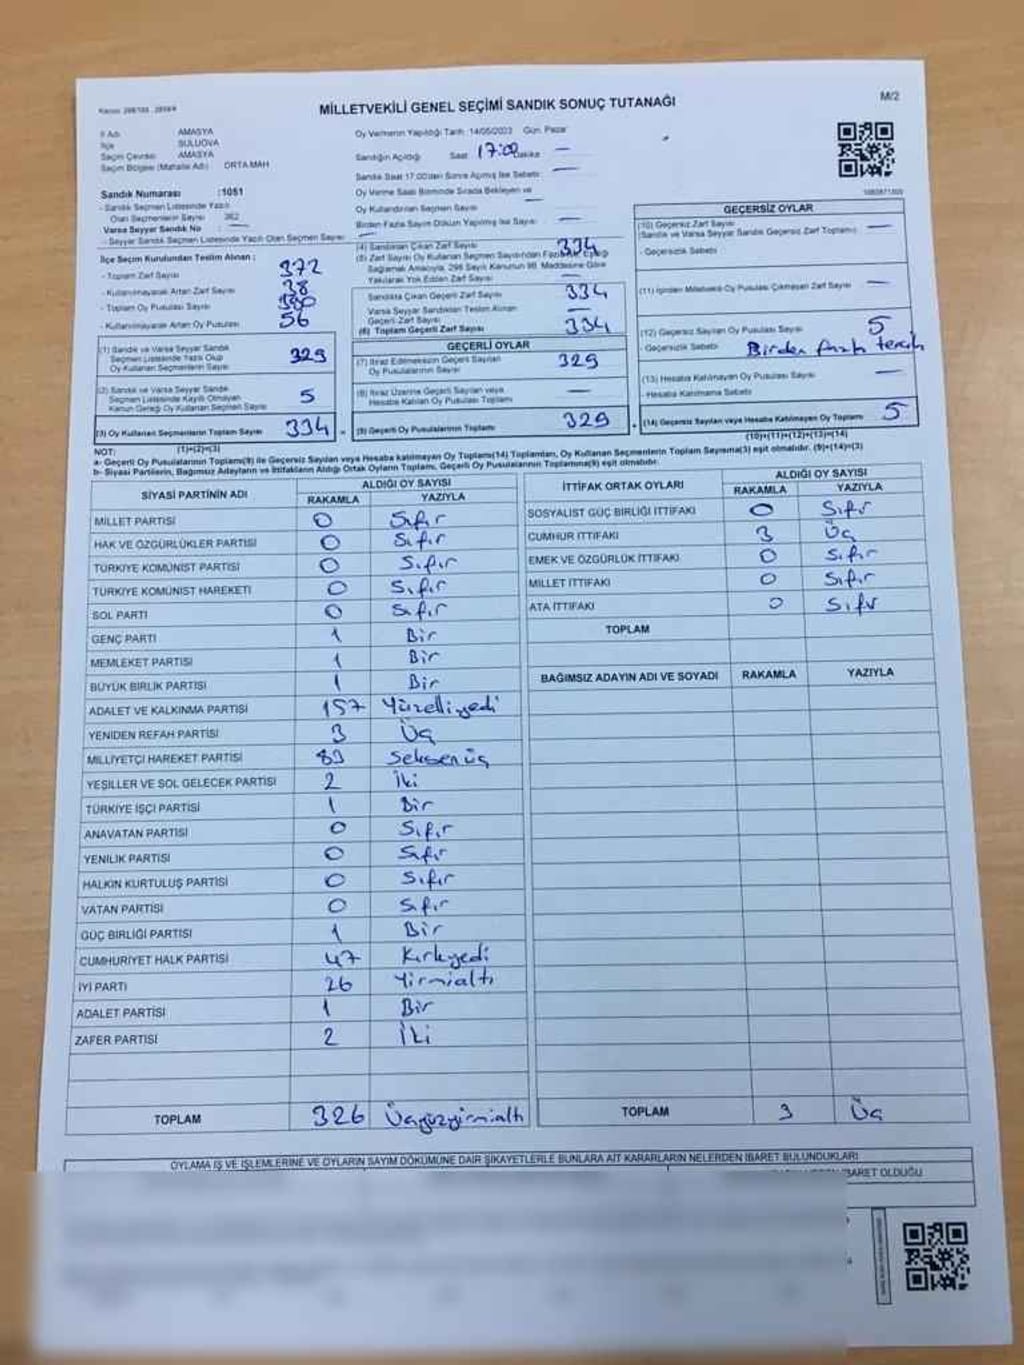 MİLLETVEKİLİ GENEL SEÇİMİ SANDIK SONUÇ TUTANAĞI
M/2
İl Adı AMASYA
İlçe SULUOVA
Seçim Çevresi AMASYA
Seçim Bölgesi (Mahalle Adı) ORTA MAH
Sandık Numarası :1051
- Sandık Seçmen Listesinde Yazılı
Olan Seçmenlerin Sayısı 362
Varsa Seyyar Sandık No —
- Seyyar Sandık Seçmen Listesinde Yazılı Olan Seçmen Sayısı —
Oy Vermenin Yapıldığı Tarih: 14/05/2023 Gün: Pazar
Sandığın Açıldığı Saat 17:00 Dakika —
Sandık Saat 17:00'den Sonra Açılmış İse Sebebi: —
Oy Verme Saati Bitiminde Sırada Bekleyen ve
Oy Kullandırılan Seçmen Sayısı —
Birden Fazla Sayım Döküm Yapılmış İse Sayısı —
İlçe Seçim Kurulundan Teslim Alınan :
- Toplam Zarf Sayısı 372
- Kullanılmayarak Artan Zarf Sayısı 38
- Toplam Oy Pusulası Sayısı
- Kullanılmayarak Artan Oy Pusulası 56
(1) Sandık ve Varsa Seyyar Sandık
Seçmen Listesinde Yazılı Olup
Oy Kullanan Seçmenlerin Sayısı 329
(2) Sandık ve Varsa Seyyar Sandık
Seçmen Listesinde Kayıtlı Olmayan
Kanun Gereği Oy Kullanan Seçmen Sayısı 5
(3) Oy Kullanan Seçmenlerin Toplam Sayısı 334
(1)+(2)=(3)
(4) Sandıktan Çıkan Zarf Sayısı 334
(5) Zarf Sayısı Oy Kullanan Seçmen Sayısından Fazla ise, Eşitliği
Sağlamak Amacıyla, 298 Sayılı Kanunun 98. Maddesine Göre
Yakılarak Yok Edilen Zarf Sayısı —
Sandıkta Çıkan Geçerli Zarf Sayısı 334
Varsa Seyyar Sandıktan Teslim Alınan
Geçerli Zarf Sayısı —
(6) Toplam Geçerli Zarf Sayısı 334
GEÇERLİ OYLAR
(7) İtiraz Edilmeksizin Geçerli Sayılan
Oy Pusulalarının Sayısı 329
(8) İtiraz Üzerine Geçerli Sayılan veya
Hesaba Katılan Oy Pusulası Toplamı —
(9) Geçerli Oy Pusulalarının Toplamı 329
GEÇERSİZ OYLAR
(10) Geçersiz Zarf Sayısı
(Sandık ve Varsa Seyyar Sandık Geçersiz Zarf Toplamı) —
- Geçersizlik Sebebi
(11) İçinden Milletvekili Oy Pusulası Çıkmayan Zarf Sayısı —
(12) Geçersiz Sayılan Oy Pusulası Sayısı 5
- Geçersizlik Sebebi Birden fazla tercih
(13) Hesaba Katılmayan Oy Pusulası Sayısı —
- Hesaba Katılmama Sebebi
(14) Geçersiz Sayılan veya Hesaba Katılmayan Oy Toplamı 5
(10)+(11)+(12)+(13)=(14)
NOT:
a- Geçerli Oy Pusulalarının(9) ile Geçersiz Sayılan veya Hesaba katılmayan Oy Toplamı(14) Toplamından, Oy Kullanan Seçmenlerin Toplam Sayısına(3) eşit olmalıdır. (9)+(14)=(3)
b- Siyasi Partilerin, Bağımsız Adayların ve İttifakların Aldığı Ortak Oyların Toplamı, Geçerli Oy Pusulalarının Toplamına(9) eşit olmalıdır.
SİYASİ PARTİNİN ADI ALDIĞI OY SAYISI
RAKAMLA YAZIYLA
MİLLET PARTİSİ 0 Sıfır
HAK VE ÖZGÜRLÜKLER PARTİSİ 0 Sıfır
TÜRKİYE KOMÜNİST PARTİSİ 0 Sıfır
TÜRKİYE KOMÜNİST HAREKETİ 0 Sıfır
SOL PARTİ 0 Sıfır
GENÇ PARTİ 1 Bir
MEMLEKET PARTİSİ 1 Bir
BÜYÜK BİRLİK PARTİSİ 1 Bir
ADALET VE KALKINMA PARTİSİ 157 Yüzelliyedi
YENİDEN REFAH PARTİSİ 3 Üç
MİLLİYETÇİ HAREKET PARTİSİ 83 Seksenüç
YEŞİLLER VE SOL GELECEK PARTİSİ 2 İki
TÜRKİYE İŞÇİ PARTİSİ 1 Bir
ANAVATAN PARTİSİ 0 Sıfır
YENİLİK PARTİSİ 0 Sıfır
HALKIN KURTULUŞ PARTİSİ 0 Sıfır
VATAN PARTİSİ 0 Sıfır
GÜÇ BİRLİĞİ PARTİSİ 1 Bir
CUMHURİYET HALK PARTİSİ 47 Kırkyedi
İYİ PARTİ 26 Yirmialtı
ADALET PARTİSİ 1 Bir
ZAFER PARTİSİ 2 İki
TOPLAM 326 Üçyüzyirmialtı
İTTİFAK ORTAK OYLARI ALDIĞI OY SAYISI
RAKAMLA YAZIYLA
SOSYALİST GÜÇ BİRLİĞİ İTTİFAKI 0 Sıfır
CUMHUR İTTİFAKI 3 Üç
EMEK VE ÖZGÜRLÜK İTTİFAKI 0 Sıfır
MİLLET İTTİFAKI 0 Sıfır
ATA İTTİFAKI 0 Sıfır
TOPLAM
BAĞIMSIZ ADAYIN ADI VE SOYADI RAKAMLA YAZIYLA
TOPLAM 3 Üç
OYLAMA İŞ VE İŞLEMLERİNE VE OYLARIN SAYIM DÖKÜMÜNE DAİR ŞİKAYETLERLE BUNLARA AİT KARARLARIN NELERDEN İBARET BULUNDUKLARI
İBARET OLDUĞU